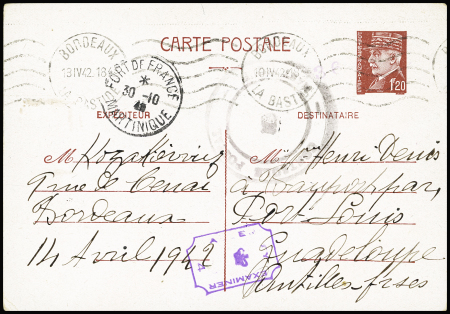 CARTE POSTALE
BORDEAUX
13 IV 42. 18
LA BASTIDE
FORT DE FRANCE
*
30 -10
MARTINIQUE
BORDEAUX
LA BASTIDE
1,20
EXPÉDITEUR
DESTINATAIRE
M. Kozakiévicz
rue
Bordeaux
14 Avril 1942
M Henri Denis
à
Port-Louis
Guadeloupe
Antilles-frses
EXAMINER
3